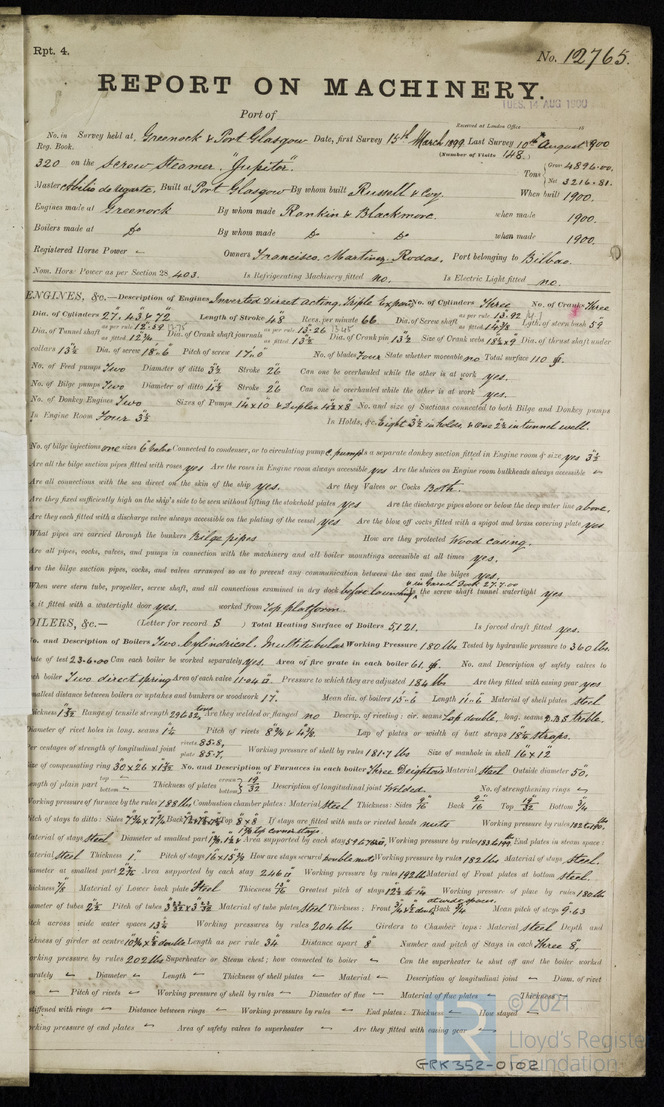 Rpt. 4.
No. 12765.
REPORT ON MACHINERY.
Port of
TUES. 14 AUG 1900
Received at London Office
No. in Survey held at Greenock & Port Glasgow Date, first Survey 15th March 1899 Last Survey 10th August 1900
Reg. Book. (Number of Visits 148.)
320 on the Screw Steamer "Jupiter" Tons Gross 4896.00. Net 3216.81.
Master Built at Port Glasgow By whom built Russell & Coy. When built 1900.
Engines made at Greenock By whom made Rankin & Blackmore. when made 1900.
Boilers made at Do By whom made Do Do when made 1900.
Registered Horse Power Owners Francisco Martinez Rodas. Port belonging to Bilbao.
Nom. Horse Power as per Section 28 403. Is Refrigerating Machinery fitted no. Is Electric Light fitted no.
ENGINES, &c.— Description of Engines Inverted Direct Acting, Triple Expansn No. of Cylinders Three No. of Cranks Three
Dia. of Cylinders 27, 43 & 72 Length of Stroke 48 Revs. per minute 66 Dia. of Screw shaft as per rule 13.92 as fitted 14 3/8 Lgth. of stern bush 59
Dia. of Tunnel shaft as per rule 12.59 as fitted 12 3/4 Dia. of Crank shaft journals as per rule 13.26 as fitted 13 1/2 Dia. of Crank pin 13 1/2 Size of Crank webs 18 1/2 x 9 Dia. of thrust shaft under
collars 13 1/2 Dia. of screw 18.6 Pitch of screw 17.0 No. of blades Four State whether moveable no Total surface 110 ф.
No. of Feed pumps Two Diameter of ditto 3 1/2 Stroke 26 Can one be overhauled while the other is at work yes.
No. of Bilge pumps Two Diameter of ditto 4 1/2 Stroke 26 Can one be overhauled while the other is at work yes.
No. of Donkey Engines Two Sizes of Pumps 14 x 10 & Duplex 4 1/2 x 8 No. and size of Suctions connected to both Bilge and Donkey pumps
In Engine Room Four 3 1/2 In Holds, &c. Eight 3 1/2 in holds & One 2 1/2 in tunnel well.
No. of bilge injections one sizes 6 Connected to condenser, or to circulating pump C. pump Is a separate donkey suction fitted in Engine room & size yes 3 1/2
Are all the bilge suction pipes fitted with roses yes Are the roses in Engine room always accessible yes Are the sluices on Engine room bulkheads always accessible
Are all connections with the sea direct on the skin of the ship yes. Are they Valves or Cocks Both.
Are they fixed sufficiently high on the ship's side to be seen without lifting the stokehold plates yes Are the discharge pipes above or below the deep water line above.
Are they each fitted with a discharge valve always accessible on the plating of the vessel yes Are the blow off cocks fitted with a spigot and brass covering plate yes
What pipes are carried through the bunkers Bilge pipes How are they protected Wood casing.
Are all pipes, cocks, valves, and pumps in connection with the machinery and all boiler mountings accessible at all times yes.
Are the bilge suction pipes, cocks, and valves arranged so as to prevent any communication between the sea and the bilges yes.
When were stern tube, propeller, screw shaft, and all connections examined in dry dock before launching & in Garvel Dock 27.7.00 Is the screw shaft tunnel watertight yes
Is it fitted with a watertight door yes. worked from Top platform.
OILERS, &c.— (Letter for record S ) Total Heating Surface of Boilers 5121. Is forced draft fitted yes.
No. and Description of Boilers Two Cylindrical Multitubular Working Pressure 180 lbs Tested by hydraulic pressure to 360 lbs.
Date of test 23.6.00 Can each boiler be worked separately yes. Area of fire grate in each boiler 61 ф. No. and Description of safety valves to
each boiler Two direct spring Area of each valve 11.04 Pressure to which they are adjusted 184 lbs Are they fitted with easing gear yes
Smallest distance between boilers or uptakes and bunkers or woodwork 17". Mean dia. of boilers 15.6 Length 11.6 Material of shell plates steel
Thickness 1 3/32 Range of tensile strength 29 & 32 tons Are they welded or flanged no Descrip. of riveting: cir. seams Lap double. long. seams D.B.S treble.
Diameter of rivet holes in long. seams 1 1/4 Pitch of rivets 8 3/4 & 4 3/8. Lap of plates or width of butt straps 18 1/2 straps.
Per centages of strength of longitudinal joint rivets 85.8. plate 85.7. Working pressure of shell by rules 181.7 lbs Size of manhole in shell 16 x 12
Size of compensating ring 30 x 26 x 1 3/32 No. and Description of Furnaces in each boiler Three Deightons Material Steel Outside diameter 50.
Length of plain part top bottom Thickness of plates crown bottom 19/32 Description of longitudinal joint Welded. No. of strengthening rings
Working pressure of furnace by the rules 188 lbs Combustion chamber plates: Material Steel Thickness: Sides 9/16 Back 9/16 Top 19/32 Bottom 3/4
Pitch of stays to ditto: Sides 7 3/4 x 7 3/4 Back Top 8 x 8 If stays are fitted with nuts or riveted heads nuts Working pressure by rules
Material of stays Steel. Diameter at smallest part Area supported by each stay Working pressure by rules End plates in steam space:
Material Steel Thickness 1" Pitch of stays 16 x 15 3/8 How are stays secured double nuts Working pressure by rules 182 lbs Material of stays Steel.
Diameter at smallest part 2 5/8 Area supported by each stay 246 Working pressure by rules 192 lbs Material of Front plates at bottom Steel.
Thickness 7/8 Material of Lower back plate Steel Thickness 13/16 Greatest pitch of stays Working pressure of plate by rules 180 lbs
Diameter of tubes 2 1/2 Pitch of tubes Material of tube plates Steel Thickness: Front Back 3/4 Mean pitch of stays 9.63
Pitch across wide water spaces 13 1/4 Working pressures by rules 204 lbs Girders to Chamber tops: Material Steel Depth and
thickness of girder at centre Length as per rule 34 Distance apart 8 Number and pitch of Stays in each Three 8.
Working pressure by rules 202 lbs Superheater or Steam chest; how connected to boiler Can the superheater be shut off and the boiler worked
separately Diameter Length Thickness of shell plates Material Description of longitudinal joint Diam. of rivet
Pitch of rivets Working pressure of shell by rules Diameter of flue Material of flue plates Thickness
stiffened with rings Distance between rings Working pressure by rules End plates: Thickness How stayed
Working pressure of end plates Area of safety valves to superheater Are they fitted with easing gear
© 2021
Lloyd's Register
Foundation
GRK352-0102